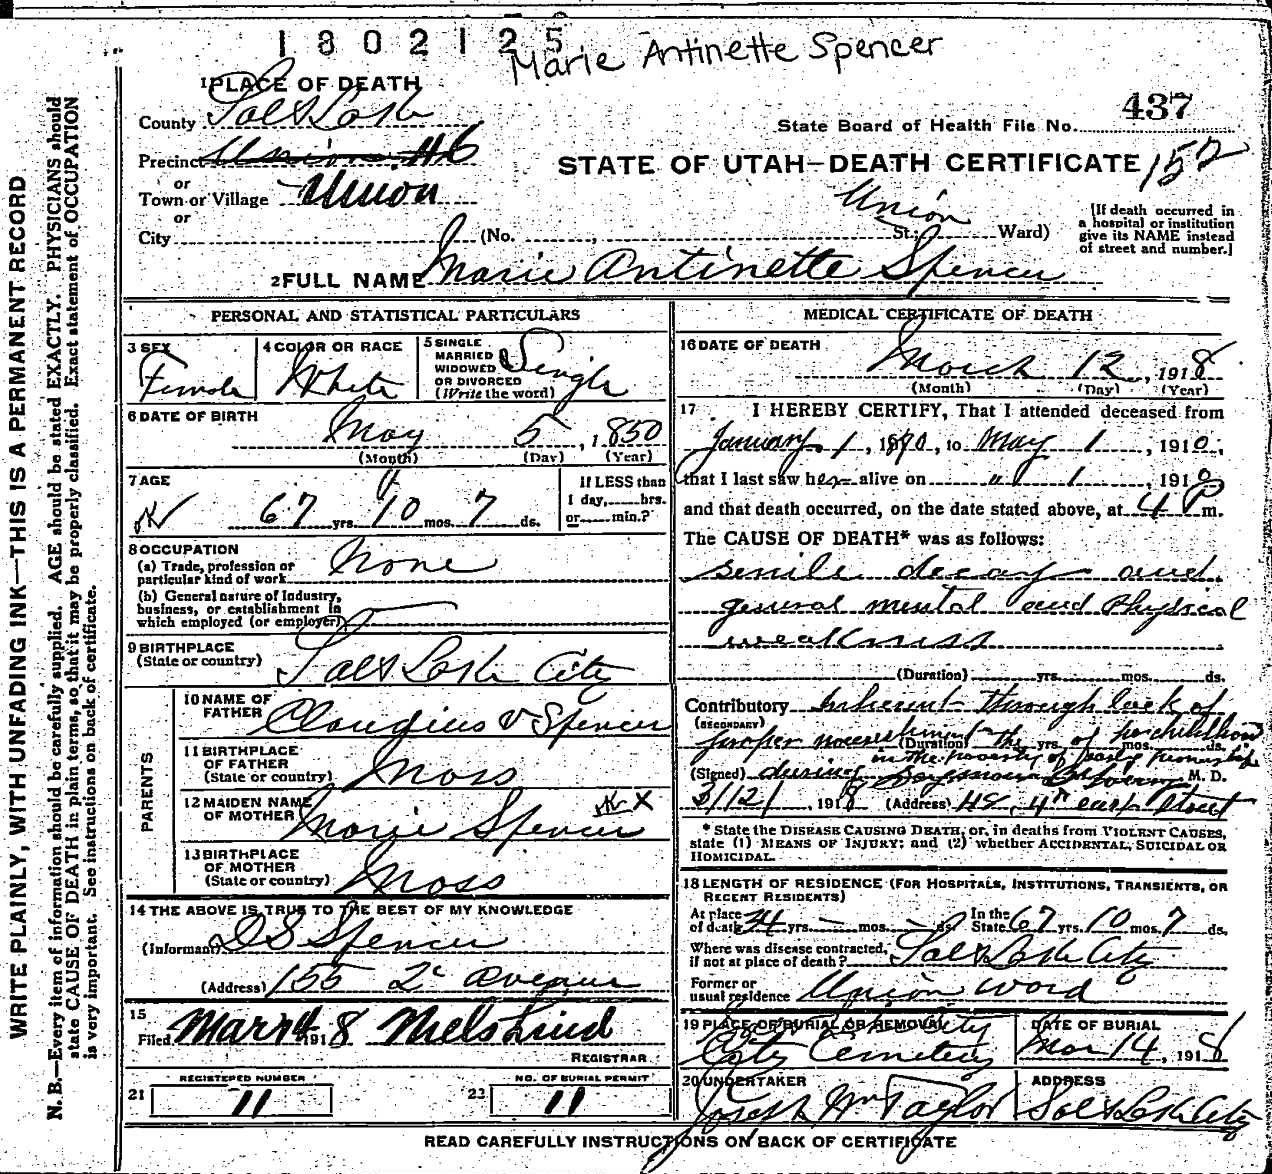 1802125
Marie Antinette Spencer
1 PLACE OF DEATH
County Salt Lake
437
State Board of Health File No.
Precinct Union #6
STATE OF UTAH—DEATH CERTIFICATE 152
or
Town or Village Union
or
Union
City (No. , St.; Ward)
[If death occurred in a hospital or institution give its NAME instead of street and number.]
2 FULL NAME Marie Antinette Spencer
PERSONAL AND STATISTICAL PARTICULARS
3 SEX
Female
4 COLOR OR RACE
White
5 SINGLE
MARRIED
WIDOWED
OR DIVORCED
(Write the word)
Single
6 DATE OF BIRTH
May 5, 1850
(Month) (Day) (Year)
7 AGE
67 yrs. 10 mos. 7 ds.
If LESS than
1 day, hrs.
or min.?
8 OCCUPATION
(a) Trade, profession or
particular kind of work
None
(b) General nature of Industry,
business, or establishment in
which employed (or employer)
9 BIRTHPLACE
(State or country)
Salt Lake City
PARENTS
10 NAME OF
FATHER
Claudius V Spencer
11 BIRTHPLACE
OF FATHER
(State or country)
Mass
12 MAIDEN NAME
OF MOTHER
Marie Spencer
13 BIRTHPLACE
OF MOTHER
(State or country)
Mass
14 THE ABOVE IS TRUE TO THE BEST OF MY KNOWLEDGE
(Informant) D S Spencer
(Address) 155 2d Avenue
15
Filed Mar 14 1918 Niels Lind
REGISTRAR
REGISTERED NUMBER
21 11
NO. OF BURIAL PERMIT
22 11
MEDICAL CERTIFICATE OF DEATH
16 DATE OF DEATH
March 12, 1918
(Month) (Day) (Year)
17 I HEREBY CERTIFY, That I attended deceased from
January 1, 1890, to May 1, 1910,
that I last saw her alive on " 1, 1910
and that death occurred, on the date stated above, at 4 P m.
The CAUSE OF DEATH* was as follows:
senile decay and
general mental and Physical
weakness
(Duration) yrs. mos. ds.
Contributory Inherent through lack of
(SECONDARY)
proper nourishment in the of
(Duration) yrs. mos. ds.
in the poverty of early
(Signed) during M. D.
3/12/, 1918 (Address) 4th east street
* State the DISEASE CAUSING DEATH, or, in deaths from VIOLENT CAUSES,
state (1) MEANS OF INJURY; and (2) whether ACCIDENTAL, SUICIDAL OR
HOMICIDAL.
18 LENGTH OF RESIDENCE (FOR HOSPITALS, INSTITUTIONS, TRANSIENTS, OR
RECENT RESIDENTS)
At place
of death 24 yrs. mos. ds.
In the
State 67 yrs. 10 mos. 7 ds.
Where was disease contracted,
if not at place of death? Salt Lake City
Former or
usual residence Union Ward
19 PLACE OF BURIAL OR REMOVAL
Salt Lake City
City Cemetery
DATE OF BURIAL
Mar 14, 1918
20 UNDERTAKER
Joseph Wm Taylor
ADDRESS
Salt Lake City
READ CAREFULLY INSTRUCTIONS ON BACK OF CERTIFICATE
WRITE PLAINLY, WITH UNFADING INK—THIS IS A PERMANENT RECORD
N. B.—Every item of information should be carefully supplied. AGE should be stated EXACTLY. PHYSICIANS should
state CAUSE OF DEATH in plain terms, so that it may be properly classified. Exact statement of OCCUPATION
is very important. See instructions on back of certificate.